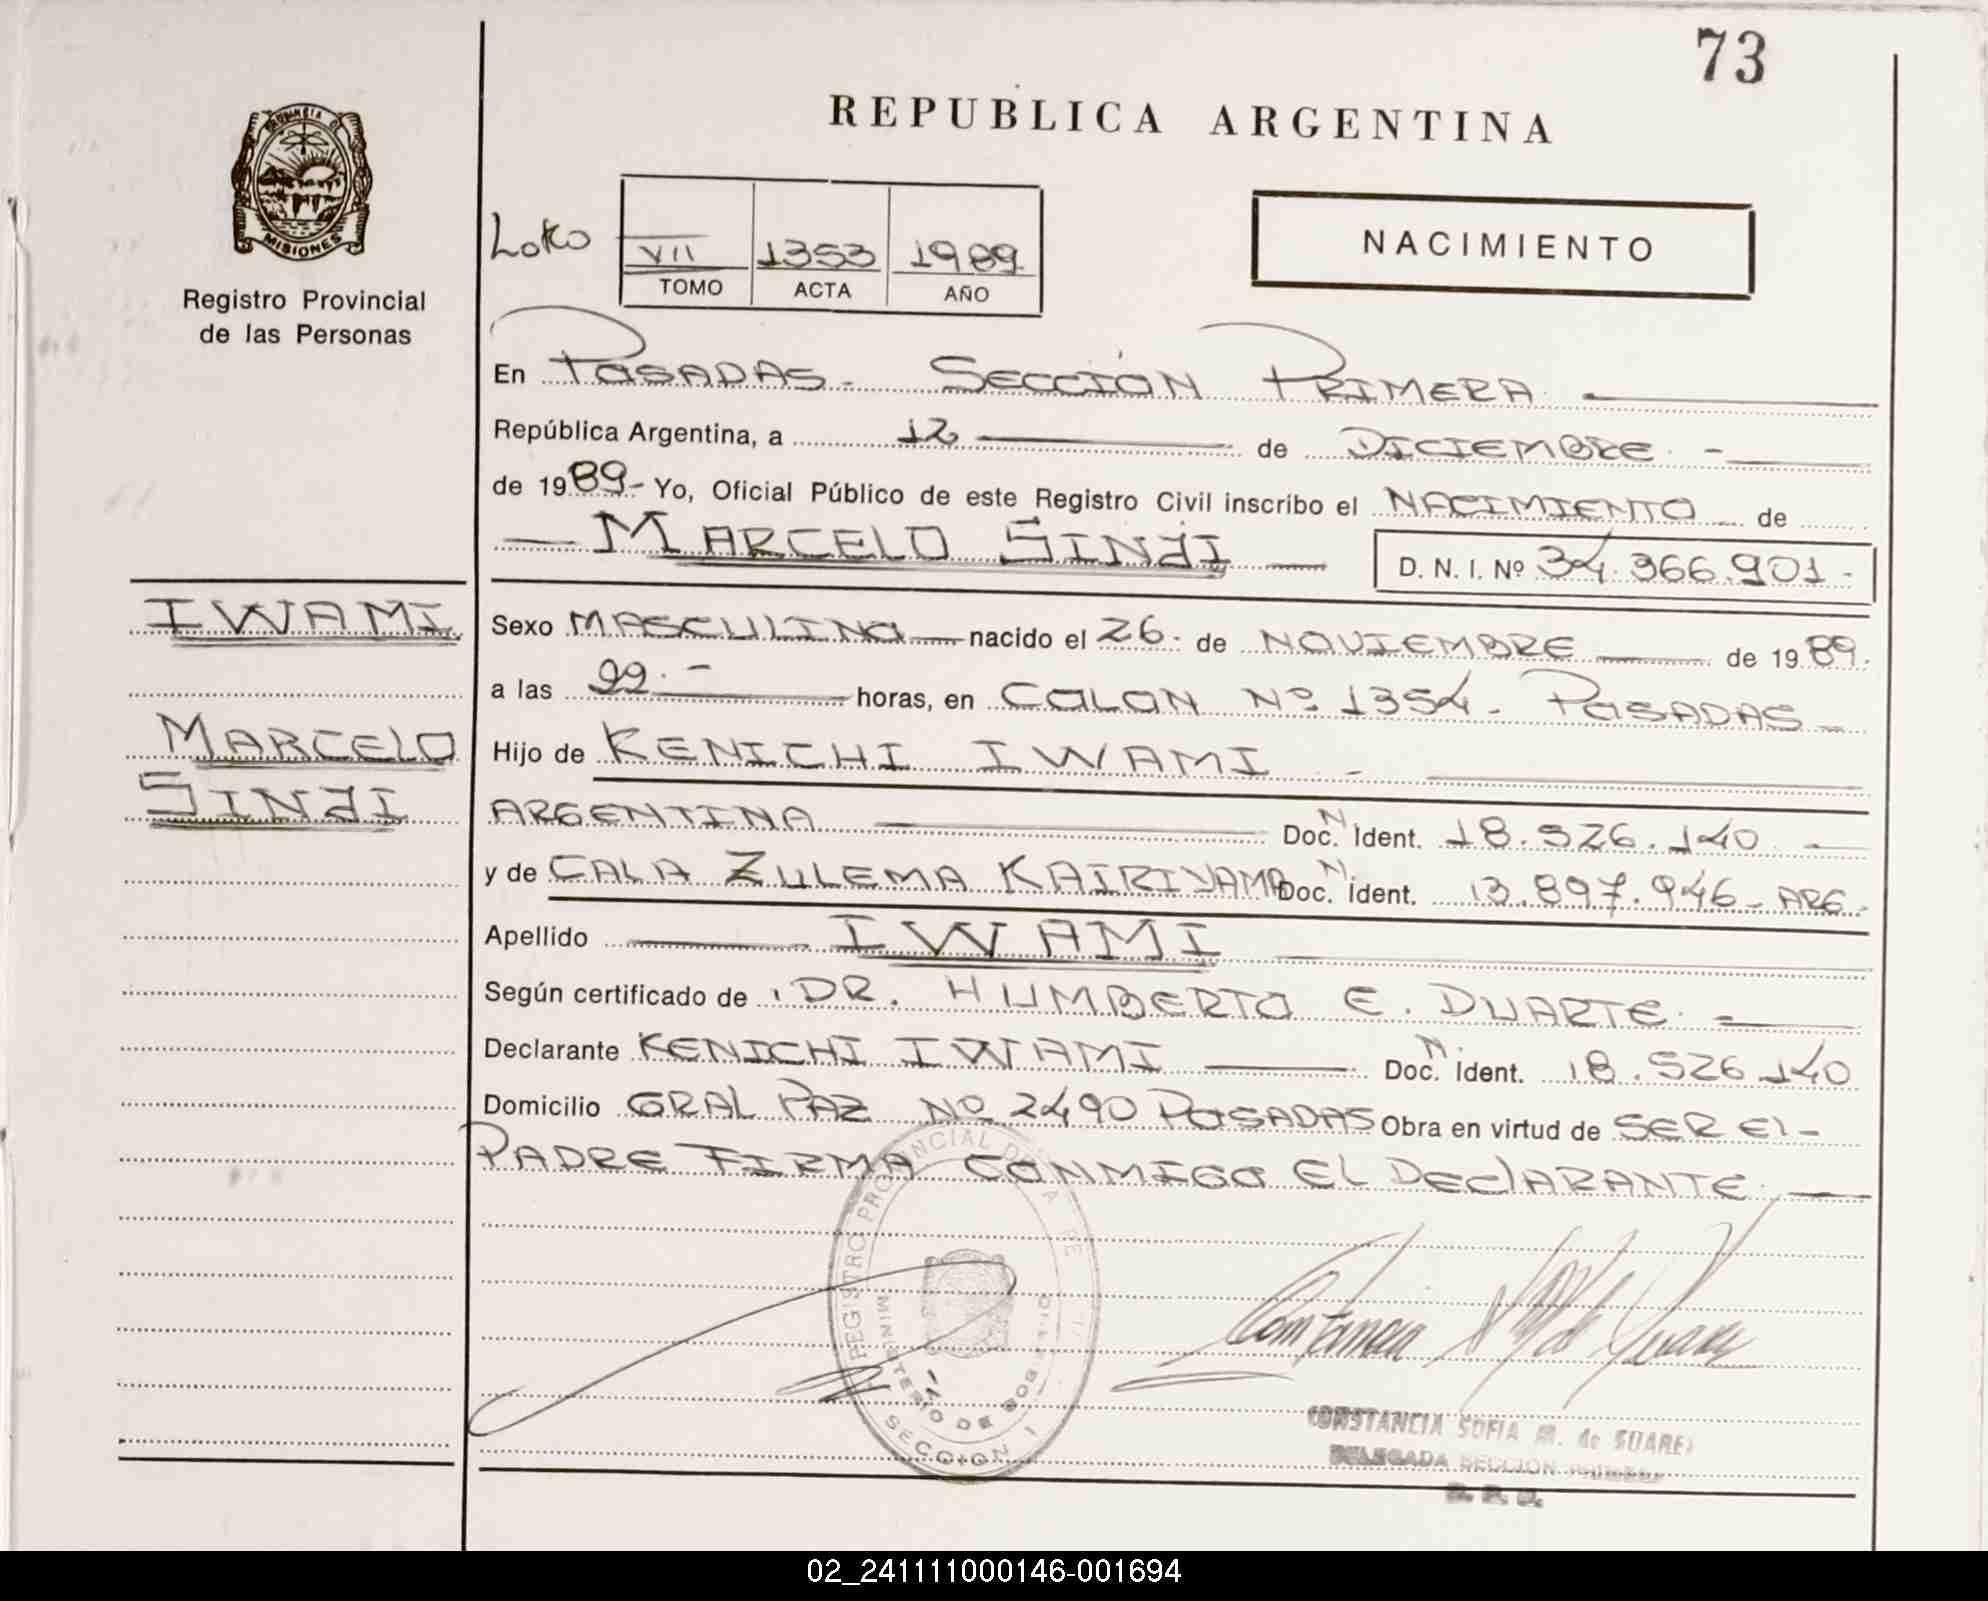 73
REPUBLICA ARGENTINA
PROVINCIA DE
MISIONES
Registro Provincial
de las Personas
NACIMIENTO
VII 1353 1989
TOMO ACTA AÑO
En POSADAS - SECCIÓN PRIMERA
República Argentina, a 12 de DICIEMBRE -
de 1989- Yo, Oficial Público de este Registro Civil inscribo el NACIMIENTO de
MARCELO SINJI D. N. I. Nº 34.366.901-
IWAMI
MARCELO
SINJI
Sexo MASCULINO nacido el 26. de NOVIEMBRE de 1989.
a las 22.- horas, en COLON Nº 1354 - POSADAS -
Hijo de KENICHI IWAMI -
ARGENTINA Doc. N Ident. 18.526.140 -
y de CALA ZULEMA KAIRIYAMA Doc. N Ident. 13.897.946 - ARG -
Apellido IWAMI
Según certificado de DR. HUMBERTO E. DUARTE -
Declarante KENICHI IWAMI Doc. N. Ident. 18.526.140
Domicilio GRAL PAZ Nº 2490 POSADAS Obra en virtud de SER El -
PADRE FIRMA CONMIGO EL DEClARANTE
REGISTRO PROVINCIAL DE LA
MINISTERIO DE GOBIERNO
SECCION 1
CONSTANCIA SOFIA M. de SUAREZ
DELEGADA SECCION PRIMERA
02_241111000146-001694